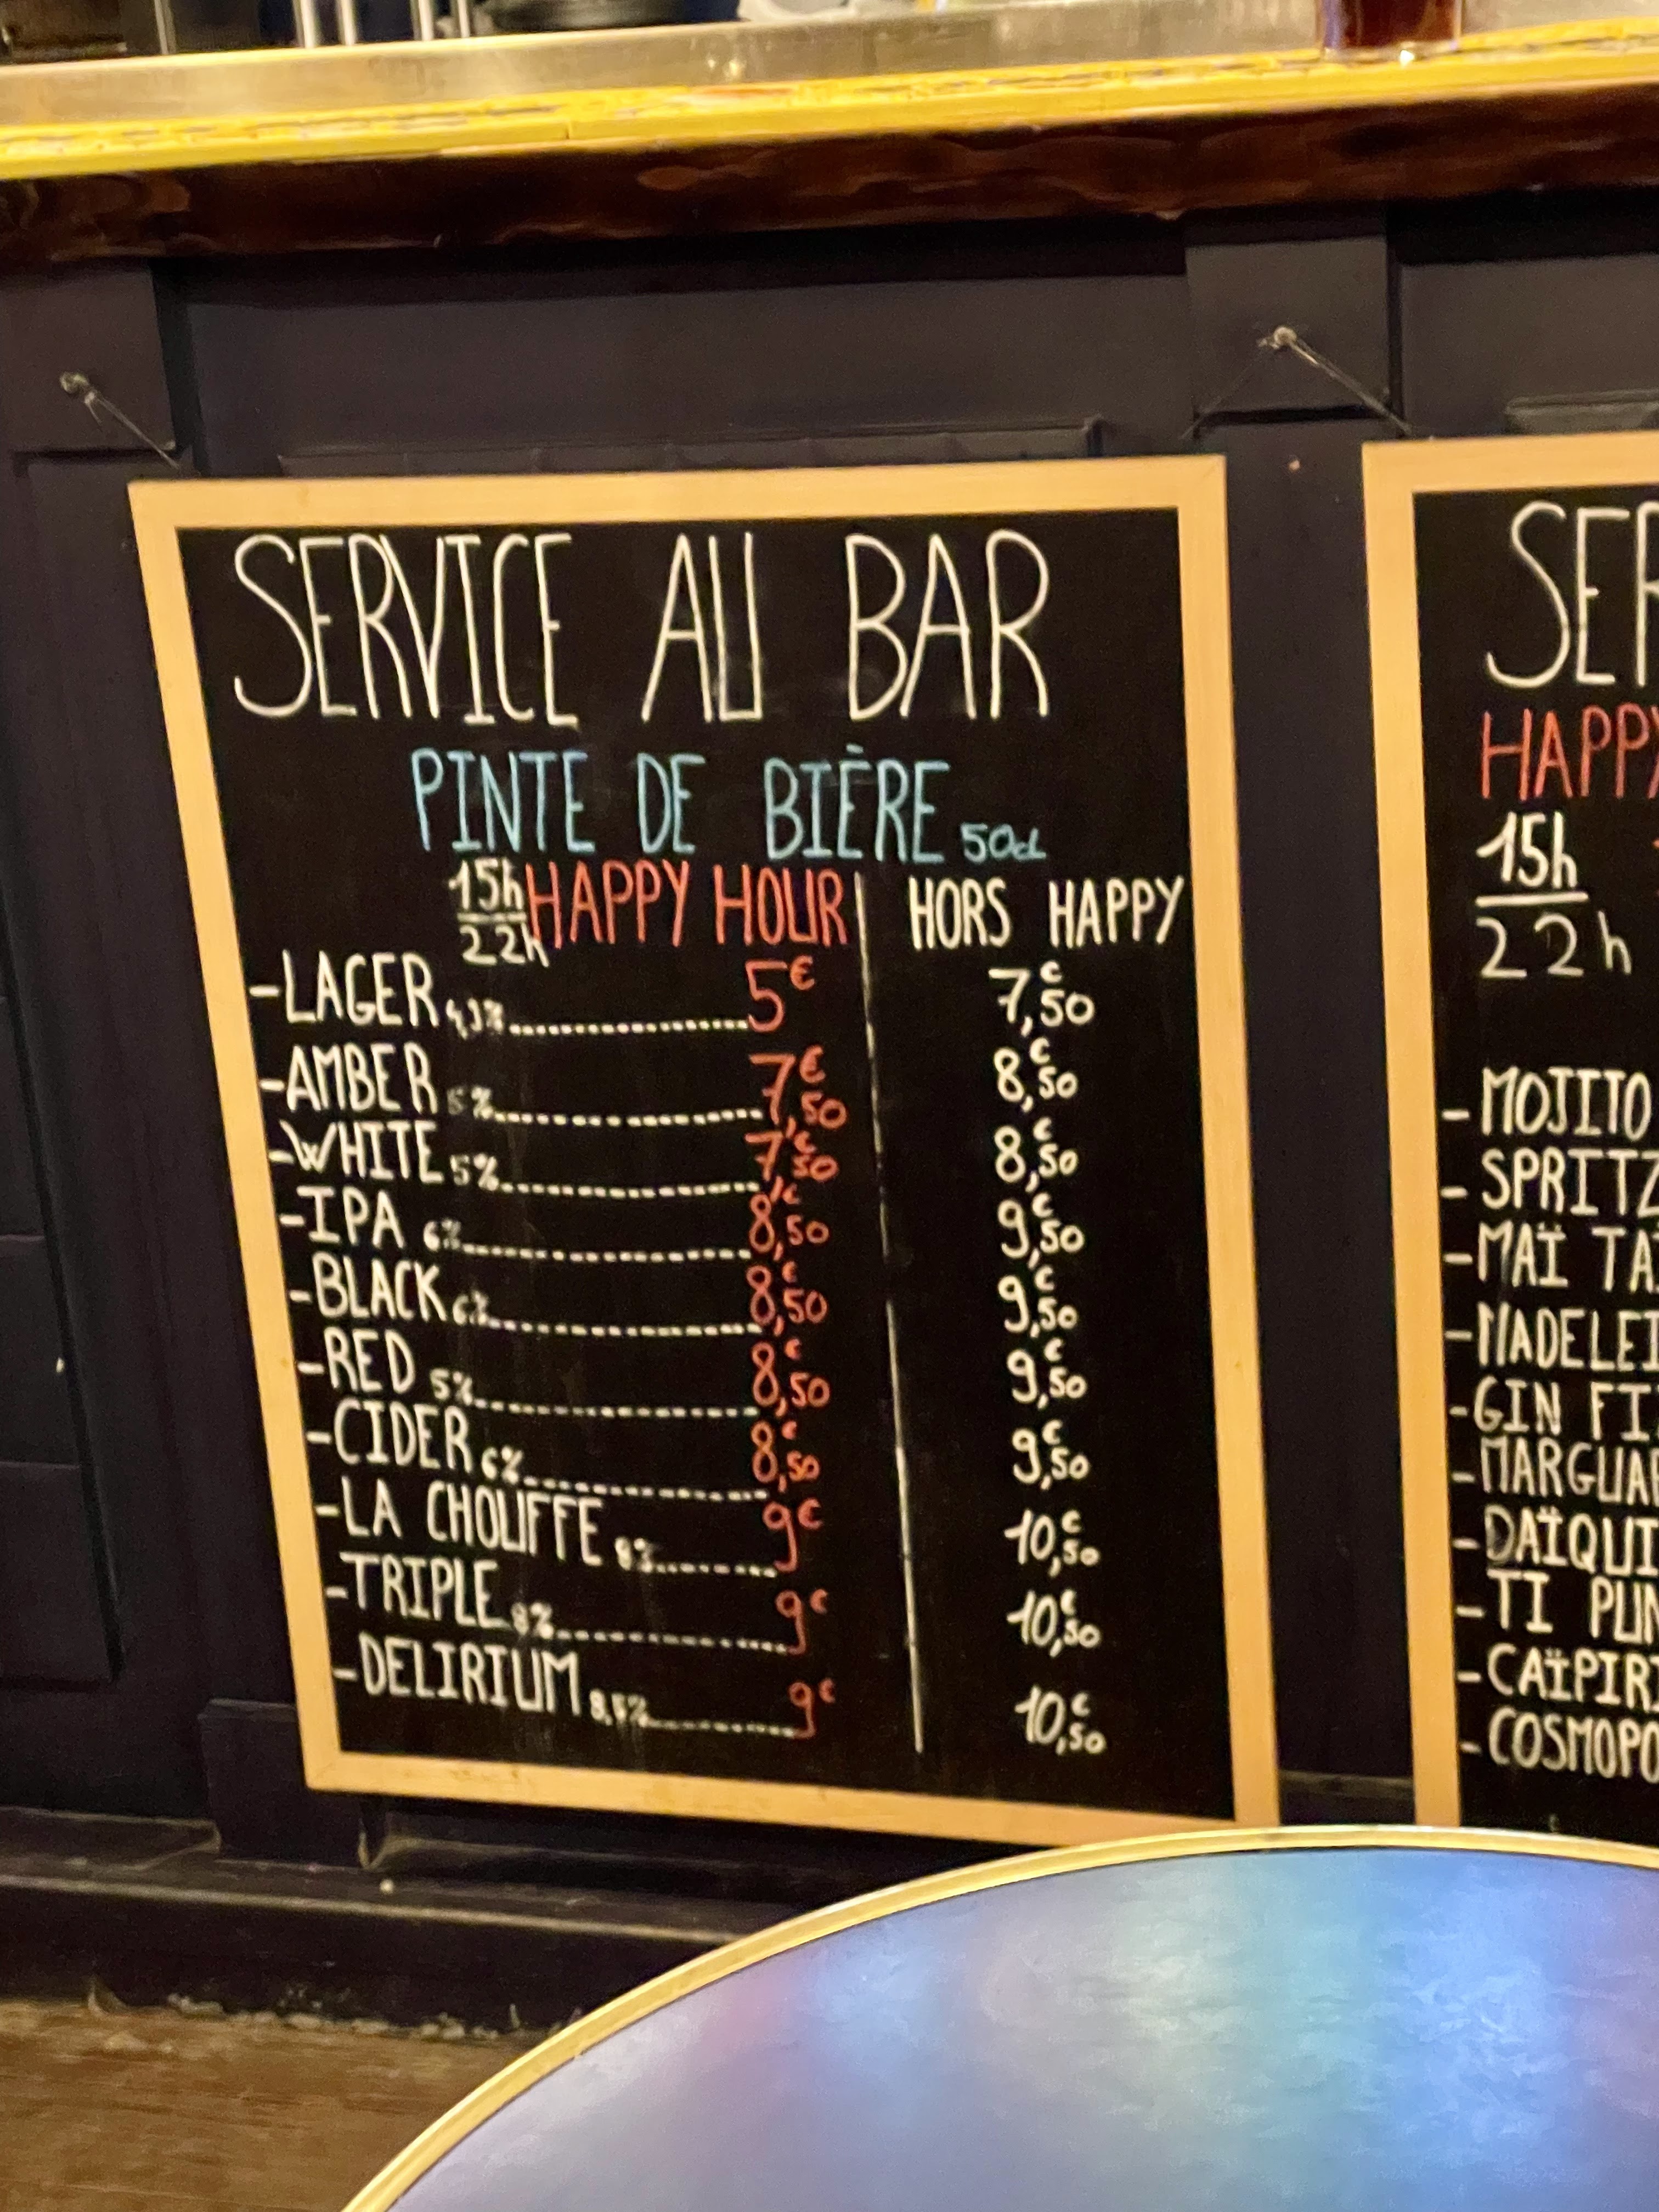 SERVICE AU BAR
PINTE DE BIÈRE 50cl
15h HAPPY HOUR HORS HAPPY
22h
-LAGER 4,3%.....5€ 7,50€
-AMBER 5%.....7,50€ 8,50€
-WHITE 5%.....7,50€ 8,50€
-IPA 6%.....8,50€ 9,50€
-BLACK 6%.....8,50€ 9,50€
-RED 5%.....8,50€ 9,50€
-CIDER 6%.....8,50€ 9,50€
-LA CHOUFFE 8%.....9€ 10,50€
-TRIPLE 8%.....9€ 10,50€
-DELIRIUM 8,5%.....9€ 10,50€
SER
HAPPY
15h
22h
-MOJITO
-SPRITZ
-MAÏ TA
-MADELEI
-GIN FI
-MARGUAR
-DAÏQUI
-TI PUN
-CAÏPIRI
-COSMOPO